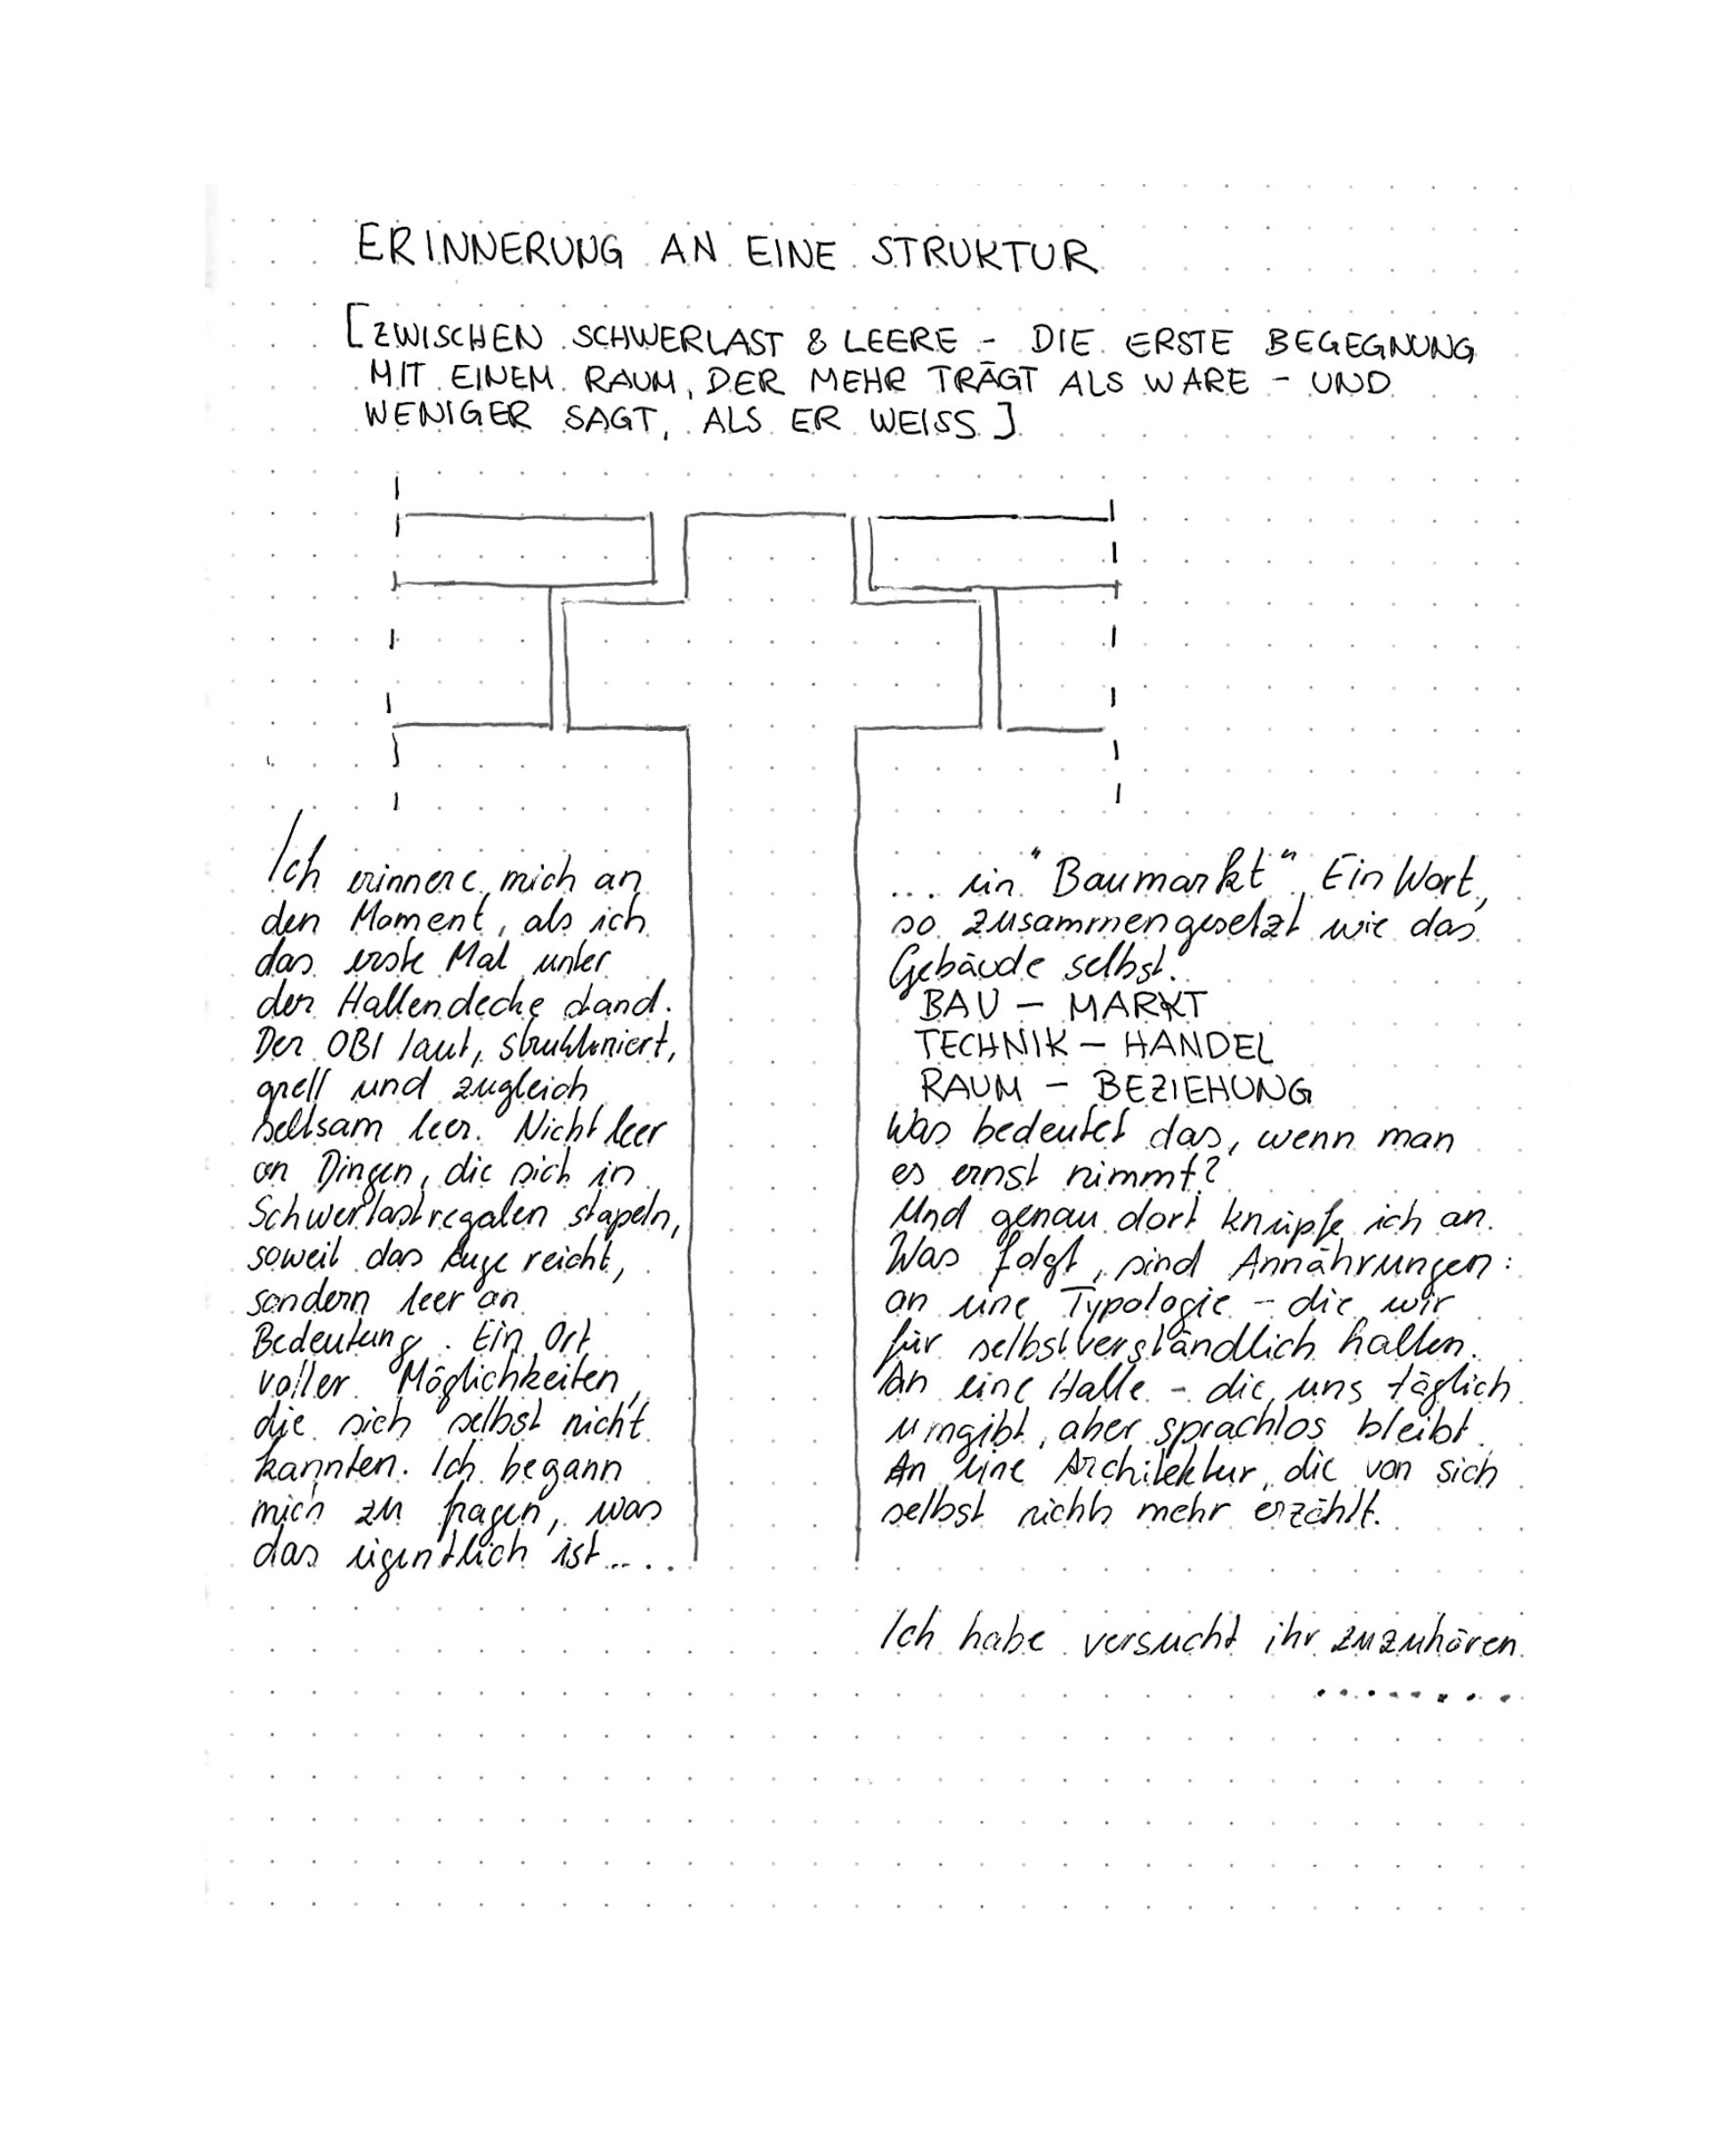 ERINNERUNG AN EINE STRUKTUR
[ZWISCHEN SCHWERLAST & LEERE - DIE ERSTE BEGEGNUNG
MIT EINEM RAUM, DER MEHR TRÄGT ALS WARE - UND
WENIGER SAGT, ALS ER WEISS]
Ich erinnere mich an
den Moment, als ich
das erste Mal unter
der Hallendecke stand.
Der OBI laut, strukturiert,
grell und zugleich
seltsam leer. Nicht leer
an Dingen, die sich in
Schwerlastregalen stapeln,
soweit das Auge reicht,
sondern leer an
Bedeutung. Ein Ort
voller Möglichkeiten,
die sich selbst nicht
kannten. Ich begann
mich zu fragen, was
das eigentlich ist....
... ein "Baumarkt". Ein Wort,
so zusammengesetzt wie das
Gebäude selbst.
BAU - MARKT
TECHNIK - HANDEL
RAUM - BEZIEHUNG
Was bedeutet das, wenn man
es ernst nimmt?
Und genau dort knüpfe ich an.
Was folgt, sind Annährungen:
an eine Typologie - die wir
für selbstverständlich halten.
An eine Halle - die uns täglich
umgibt, aber sprachlos bleibt.
An eine Architektur, die von sich
selbst nichts mehr erzählt.
Ich habe versucht ihr zuzuhören
.........